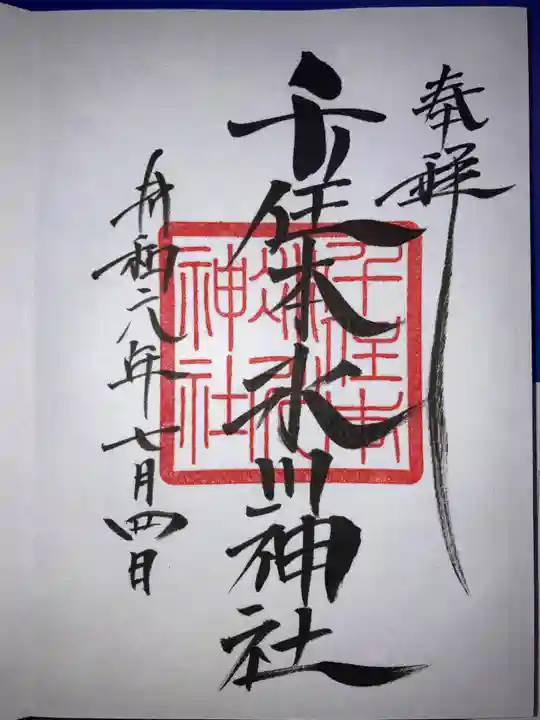 奉拝
千住本氷川神社
千住本
氷川
神社
令和六年七月四日